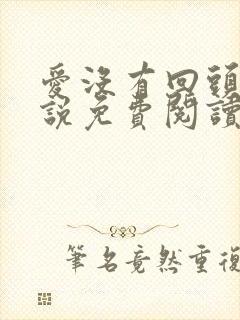 愛沒有回頭
說免費閱讀
筆名竟然重復